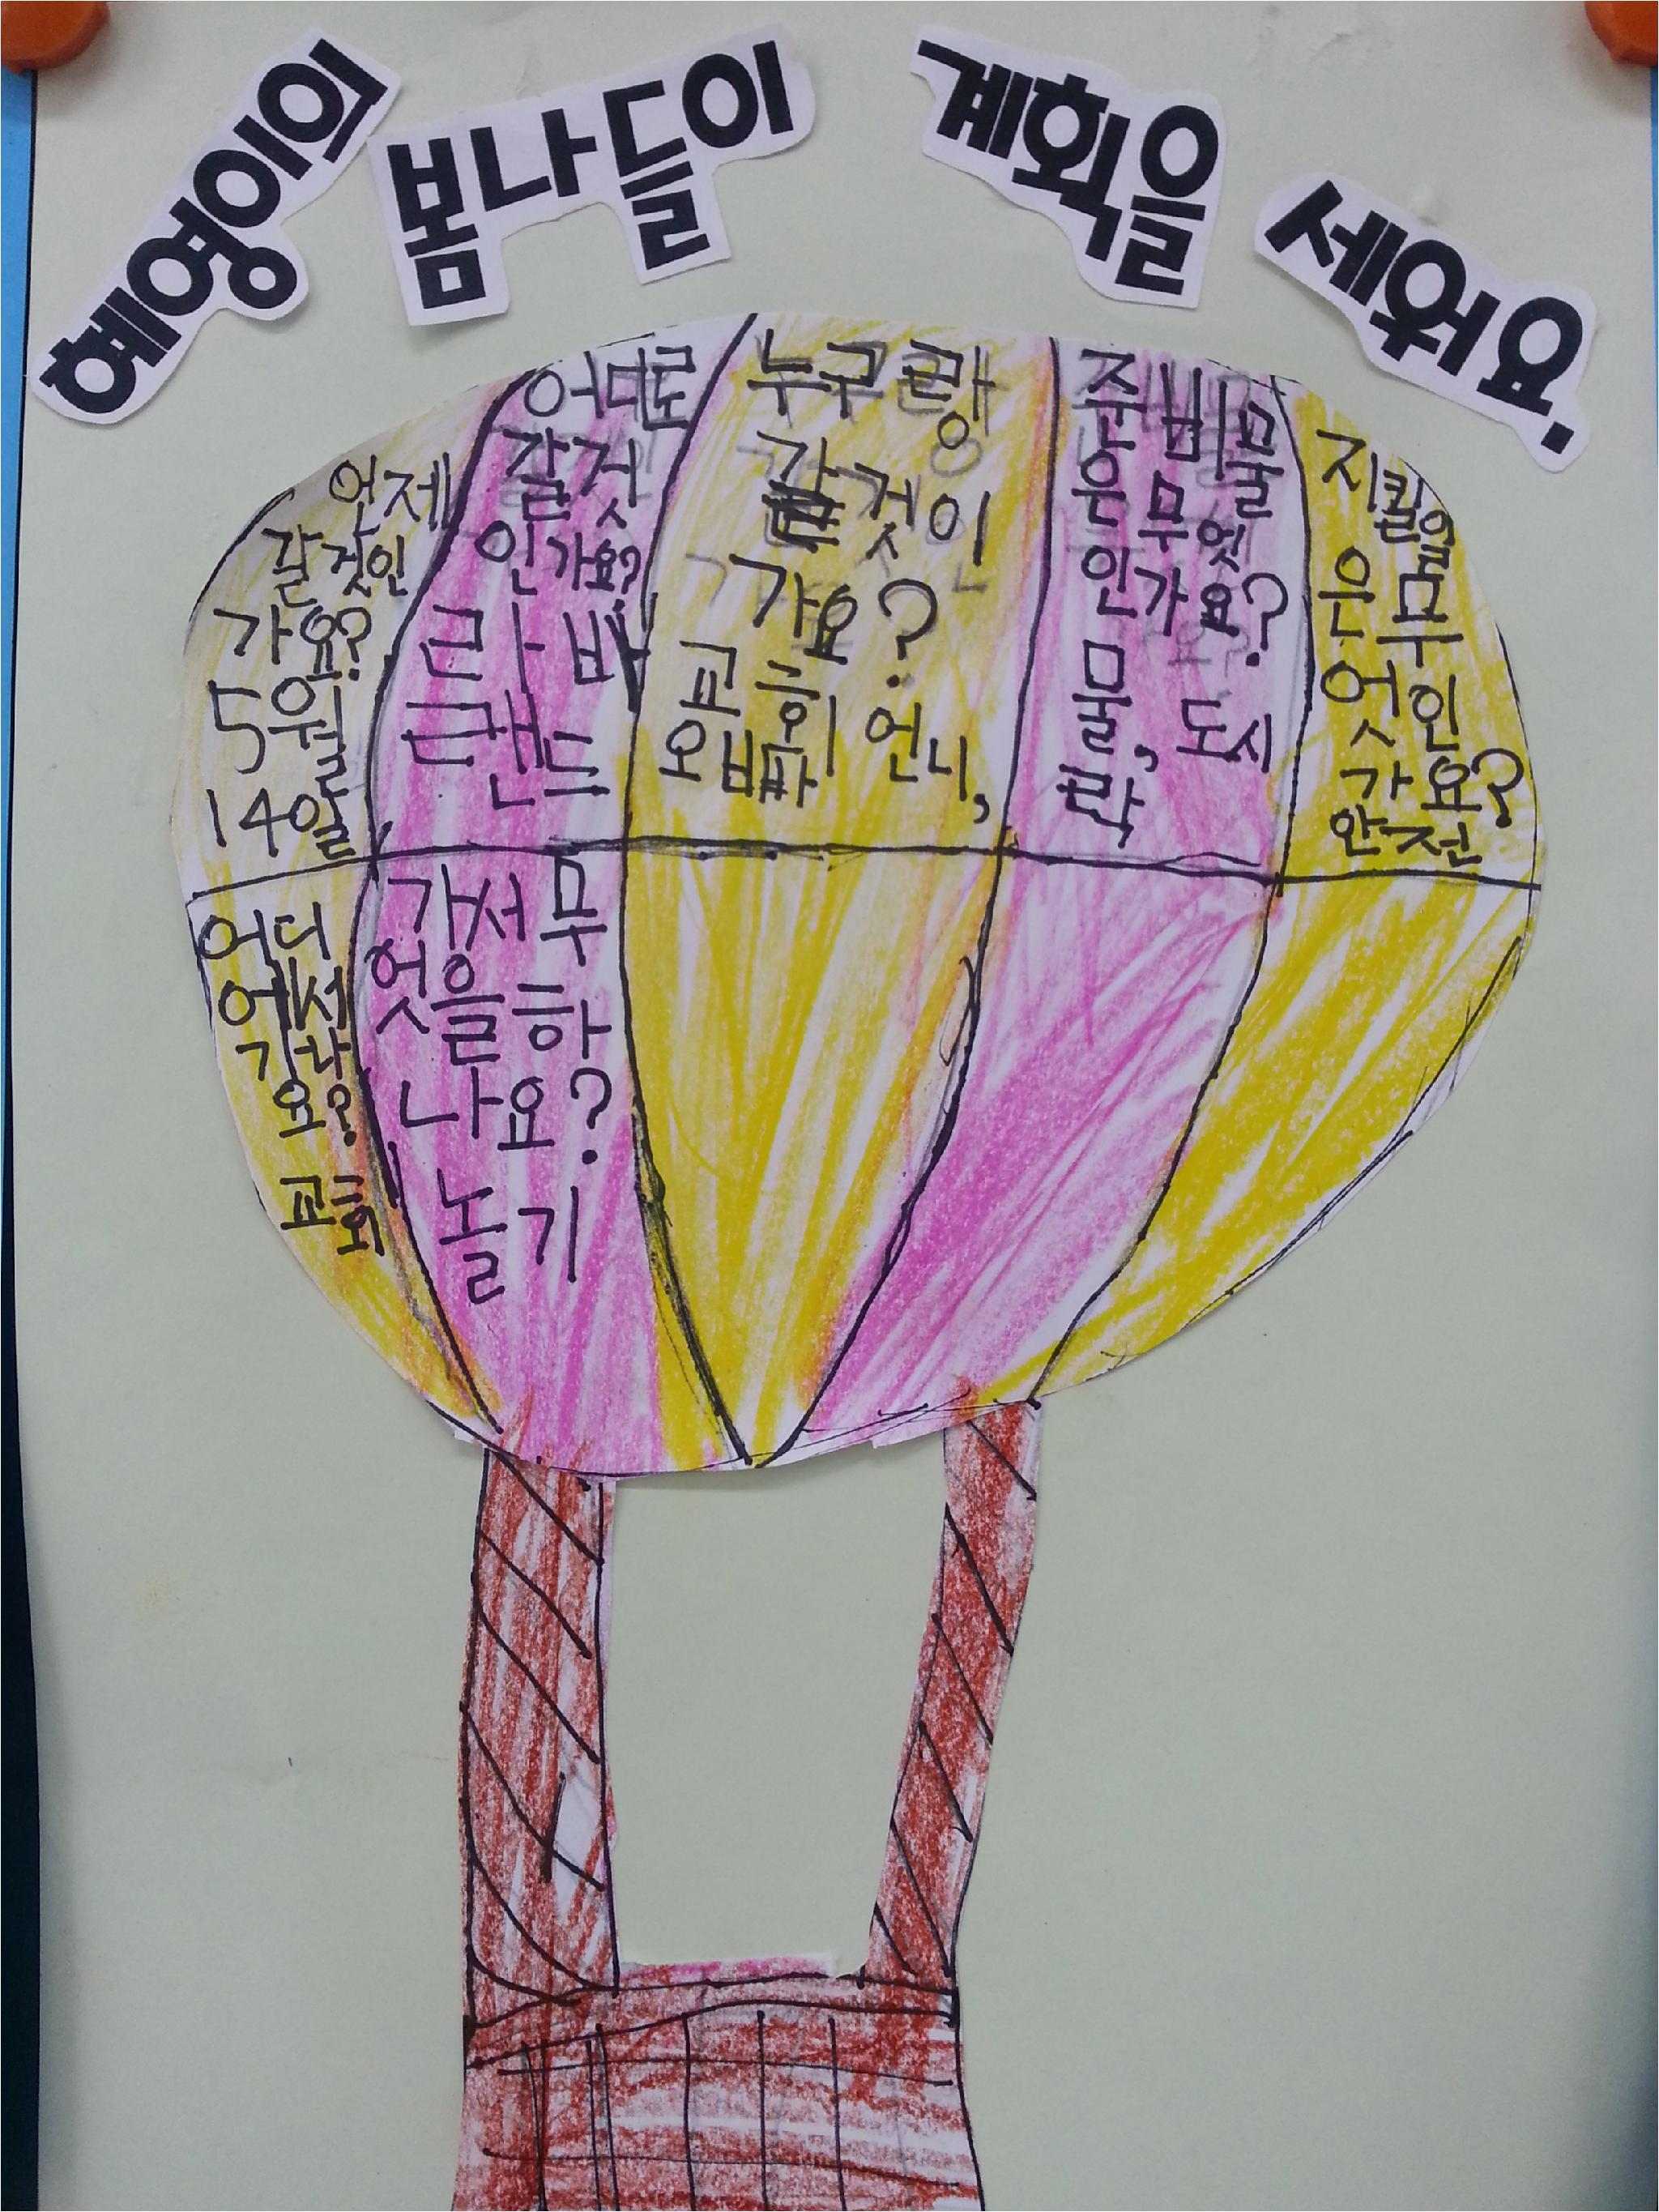 혜영이의 봄나들이 계획을 세워요.
언제
갈 것인
가요?
5월
14일
어디로
갈것
인가요?
누구랑
갈것인
가요?
교회 언니,
오빠
준비물
은 무엇
인가요?
물, 도시
락
지킬일
은 무
엇인
가요?
안전
어디
에서
가나
요?
교회
가서 무
엇을 하
나요?
놀기